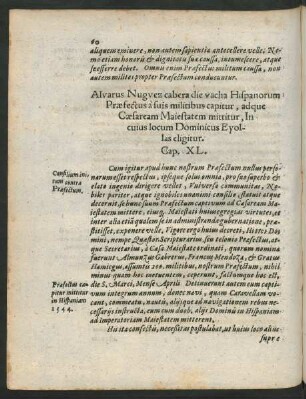 60
aliquem emiuere, non autem sapientia antecellere velle. Nemo etiam honoris & dignitatis suæ caussa, incumescere, atque
se efferre debet. Omnis enim Præfectus militum caussa, non
autem milites propter Præfectum conducuntur.
Alvarus Nugvez cabera die vacha Hispanorum
Præfectus à suis militibus capitur, adque
Cæsaream Maiestatem mittitur, In
cuius locum Dominicus Eyollas eligitur.
Cap. XL.
Cum igitur apud hunc nostrum Præfectum nullus personarum esset respectus, ipsique solus omnia, pro suo superbo &
elato ingenio dirigere vellet, Vniuersa communitas, Nobiles pariter, atque ignobiles unanimi consilio, statuit atque
decernit, se hunc suum Præfectum captivum ad Cæsaream Maiestatem mittere, eiusq; Maiestati huius egregias virtutes, et
inter alia etiam qualem in administranda gubernatione, præstitisset, exponere velle.
mini, nempe Quæstor, Scripturarius, seu telonio Præfectus, atque Secretarius, à Cæs. Maiestate ordinati, quorum nomina
fuerunt Almunzus Gabrerus, Franciscus Mendoza, & Gratus
Hanniegus, assumtis 200. militibus, nostrum Præfectum, nihil
minus quam hoc metuentem, ceperunt, factumque hoc est,
die S. Marci, Mense Aprili. Detinuerunt autem eum captivum integrum annum, donec navi, quam Caravellam vocant, commeatu, nautis, aliisque ad navigationem rebus necessariis instructa, eum cum duob. aliis Dominis in Hispaniam
ad imperatoriam Maiestatem mitterent.
His ita confectis, necessitas postulabat, ut huius loco alius
supre
Consilium initum contra
Præfectum.
Præfectus captus mittitur
in Hispaniam
1544.